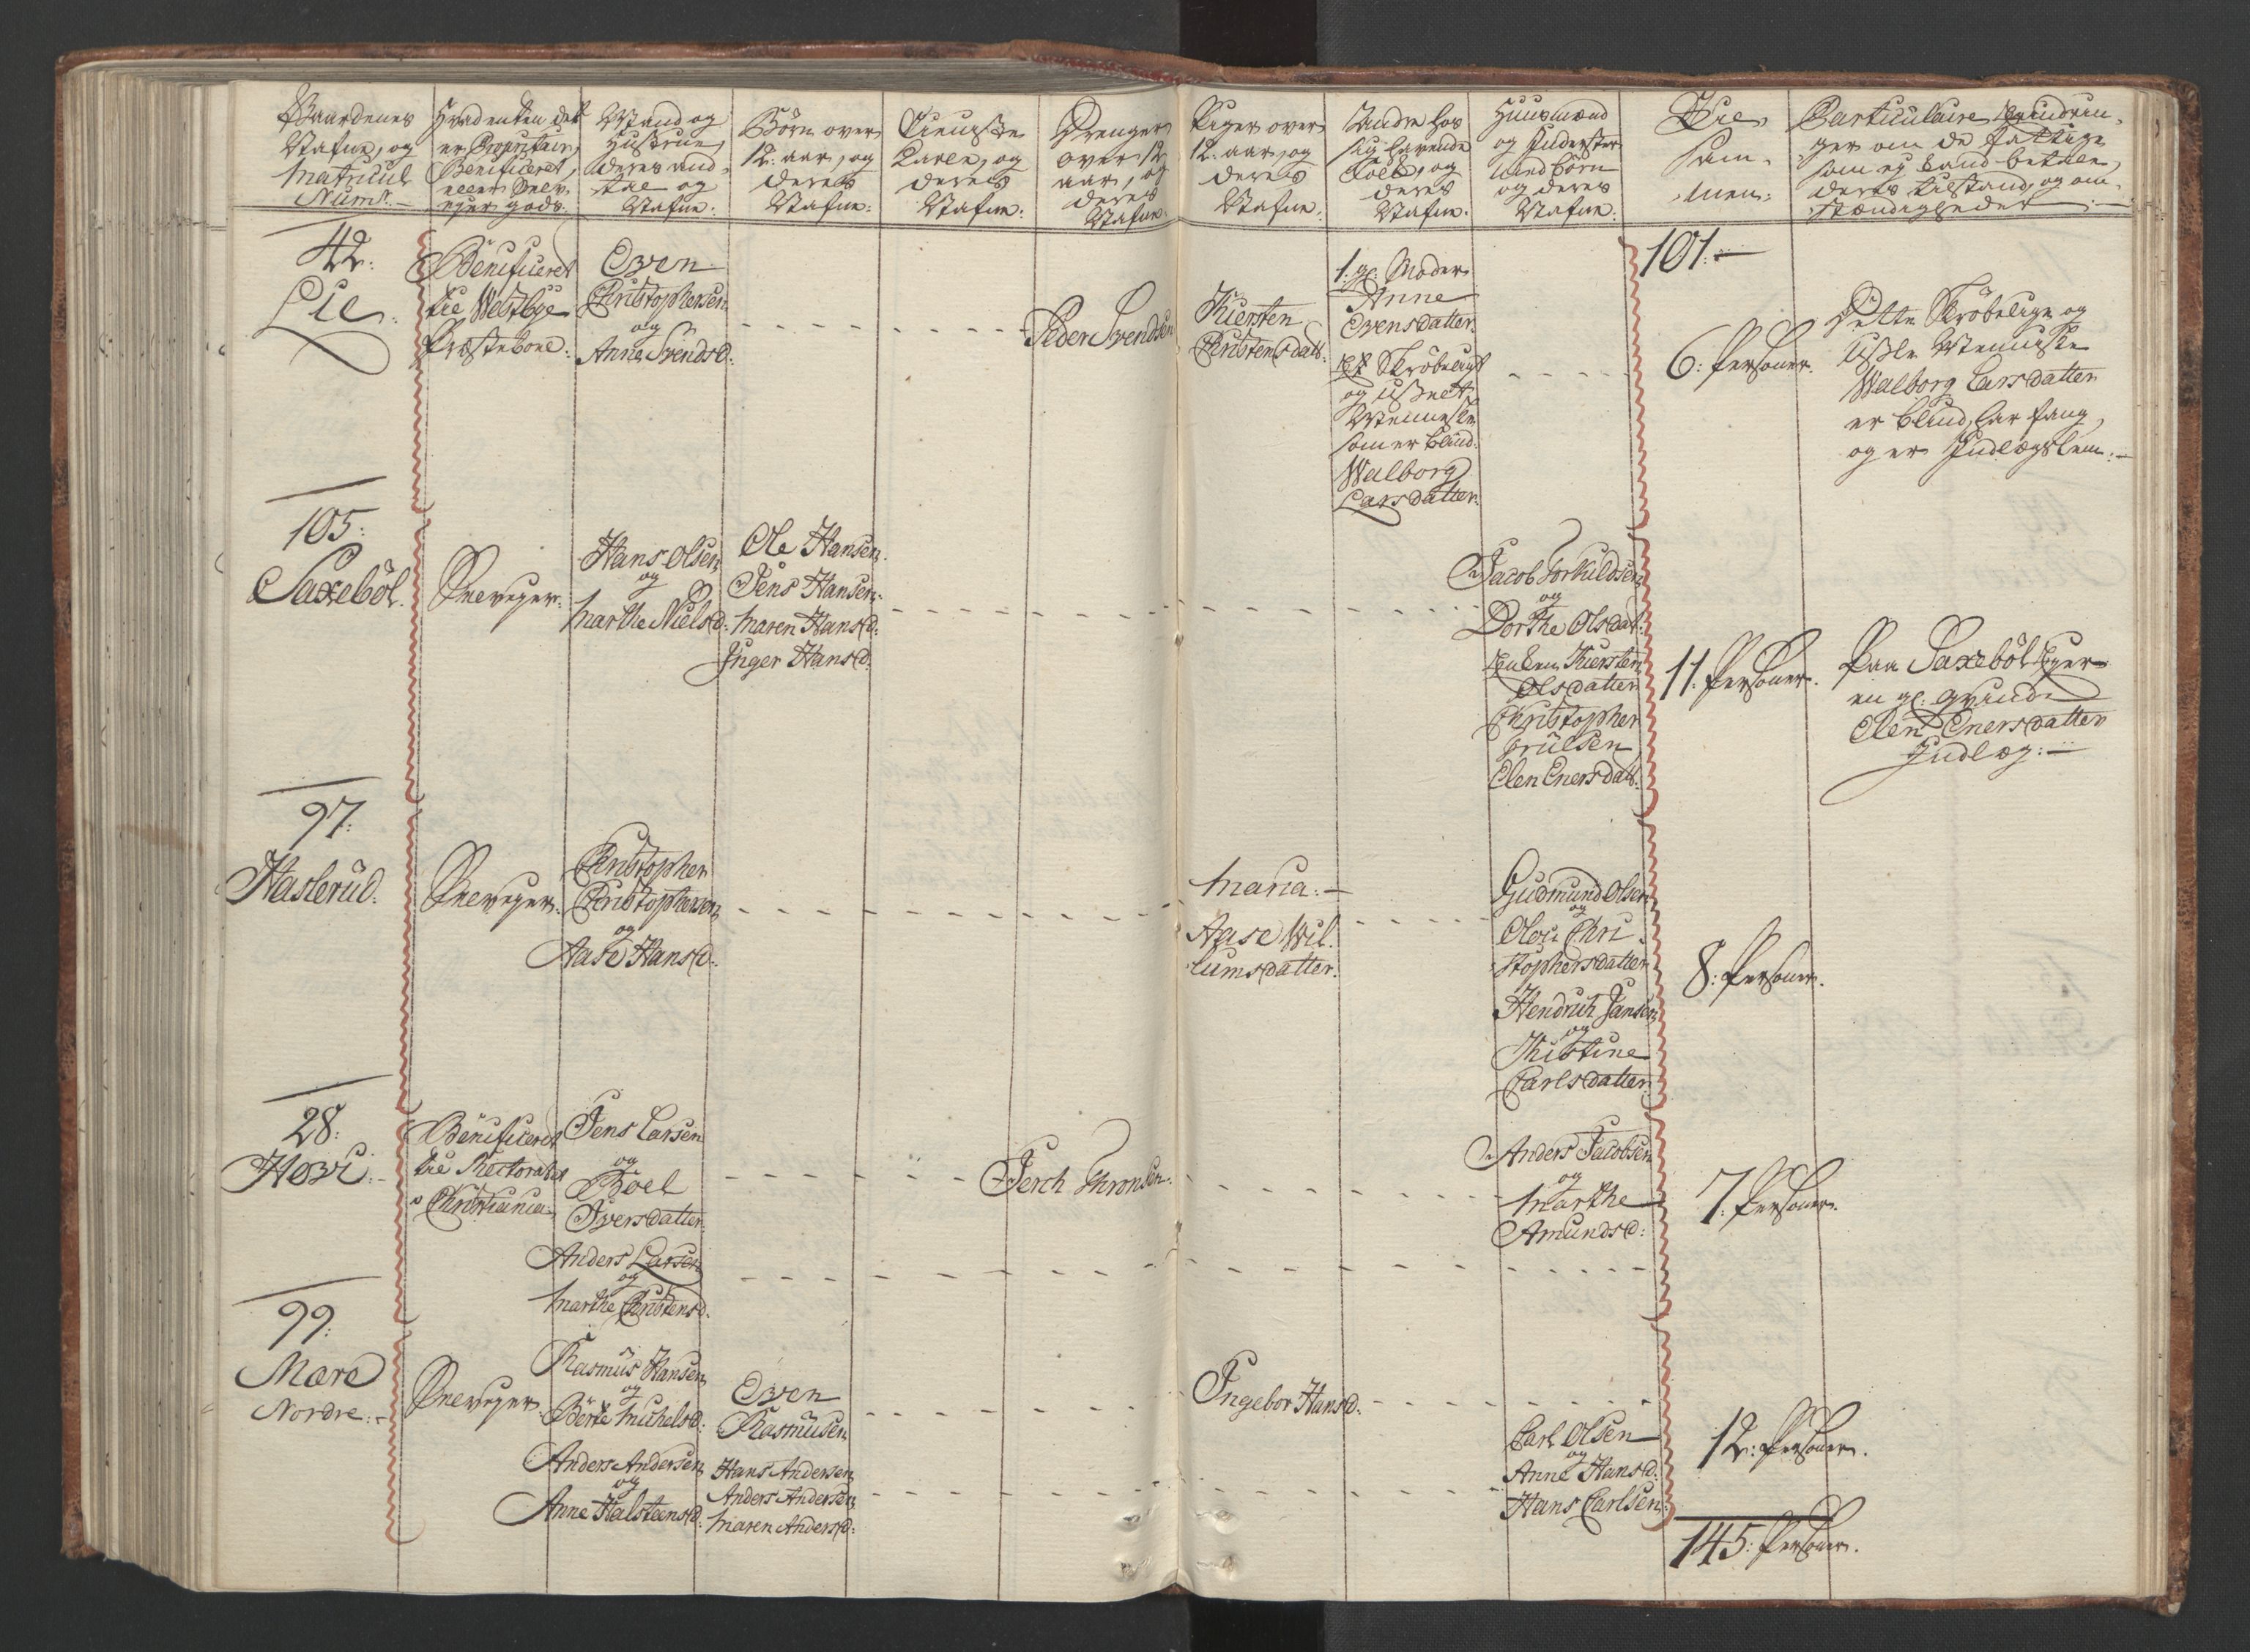 Gaardenes
Nafne, og
Matricul
Num:
Hvad enten det
er Proprietair,
Benificeret,
eller Selv-
ejer gods.
Mand og
Hustrue,
deres and-
tal og
Nafne:
Børn over
12: aar, og
deres
Nafne:
Tieniste
Karle, og
deres
Nafne:
Drenger
over 12
aar, og
deres
Nafne.
Piger over
12: aar, og
deres
Nafne:
Andre hos
sig havende
Folk, og
deres
Nafne.
Huusmænd
og Inderster
med børn
og deres
Nafne:
Til-
sam-
men:
Particulaire Erindrin-
ger om de fattige
som ej kand betale,
deres tilstand, og om-
stændigheder
42:
Lie.
Bénificeret
til Westbye
Præstebord:
Even
Christophersen
og
Anne Svendsd:
Peder Svendsen
Kiersten
Christensdatt:
1. gl: Moder
Anne
Evensdatter.
Et Skrøbeligt
og usselt
Menniske
som er blind.
Walborg
Larsdatter.
101:
6: Personer.
Dette Skrøbelige og
usle Menniske
Walborg Larsdatter
er blind,
og er Indlægslem:
105:
Saxebøl.
Selvejer.
Hans Olsen
og
Marthe Nielsd:
Ole Hansen.
Jens Hansen.
Maren Hansd:
Inger Hansd.
Jacob Torkildsen
og
Dorthe Olsdat:
Enken Kiersten
Olsdatter
Christopher
Truelsen
Elen Enersdatt.
11. Personer.
Paa Saxebøl ligger
en gl: qvinde
Elen Enersdatter
Indlæg:
97:
Haslerud.
Selvejer.
Christopher
Christophersen
og
Aase Hansd:
Maria:
Aase Wil-
lumsdatter.
Gudmund Olsen
og
Olou Chri-
stophersdatter
Hendrich Jansen
og
Khistine
Carlsdatter
8: Personer.
28:
Hovi:
Bénificeret
til Rectoratet
i Christiania
Jens Larsen
og
Boel
Iversdatter.
Anders Larsen
og
Marthe Christensd.
Jerch Thronsen.
Anders Jacobsen
og
Marthe
Amundsd:
7. Personer.
99:
Mære
Nordre:
Selvejer
Rasmus Hansen
og
Bérte Michelsd:
Anders Andersen
og
Anne Halsteensd:
Even
Rasmusen
Hans Andersen
Anders Andersen
Maren Andersd:
Ingebor Hansd.
Carl Olsen
og
Anne Hansd:
Hans Carlsen:
12: Personer.
145: Personer.